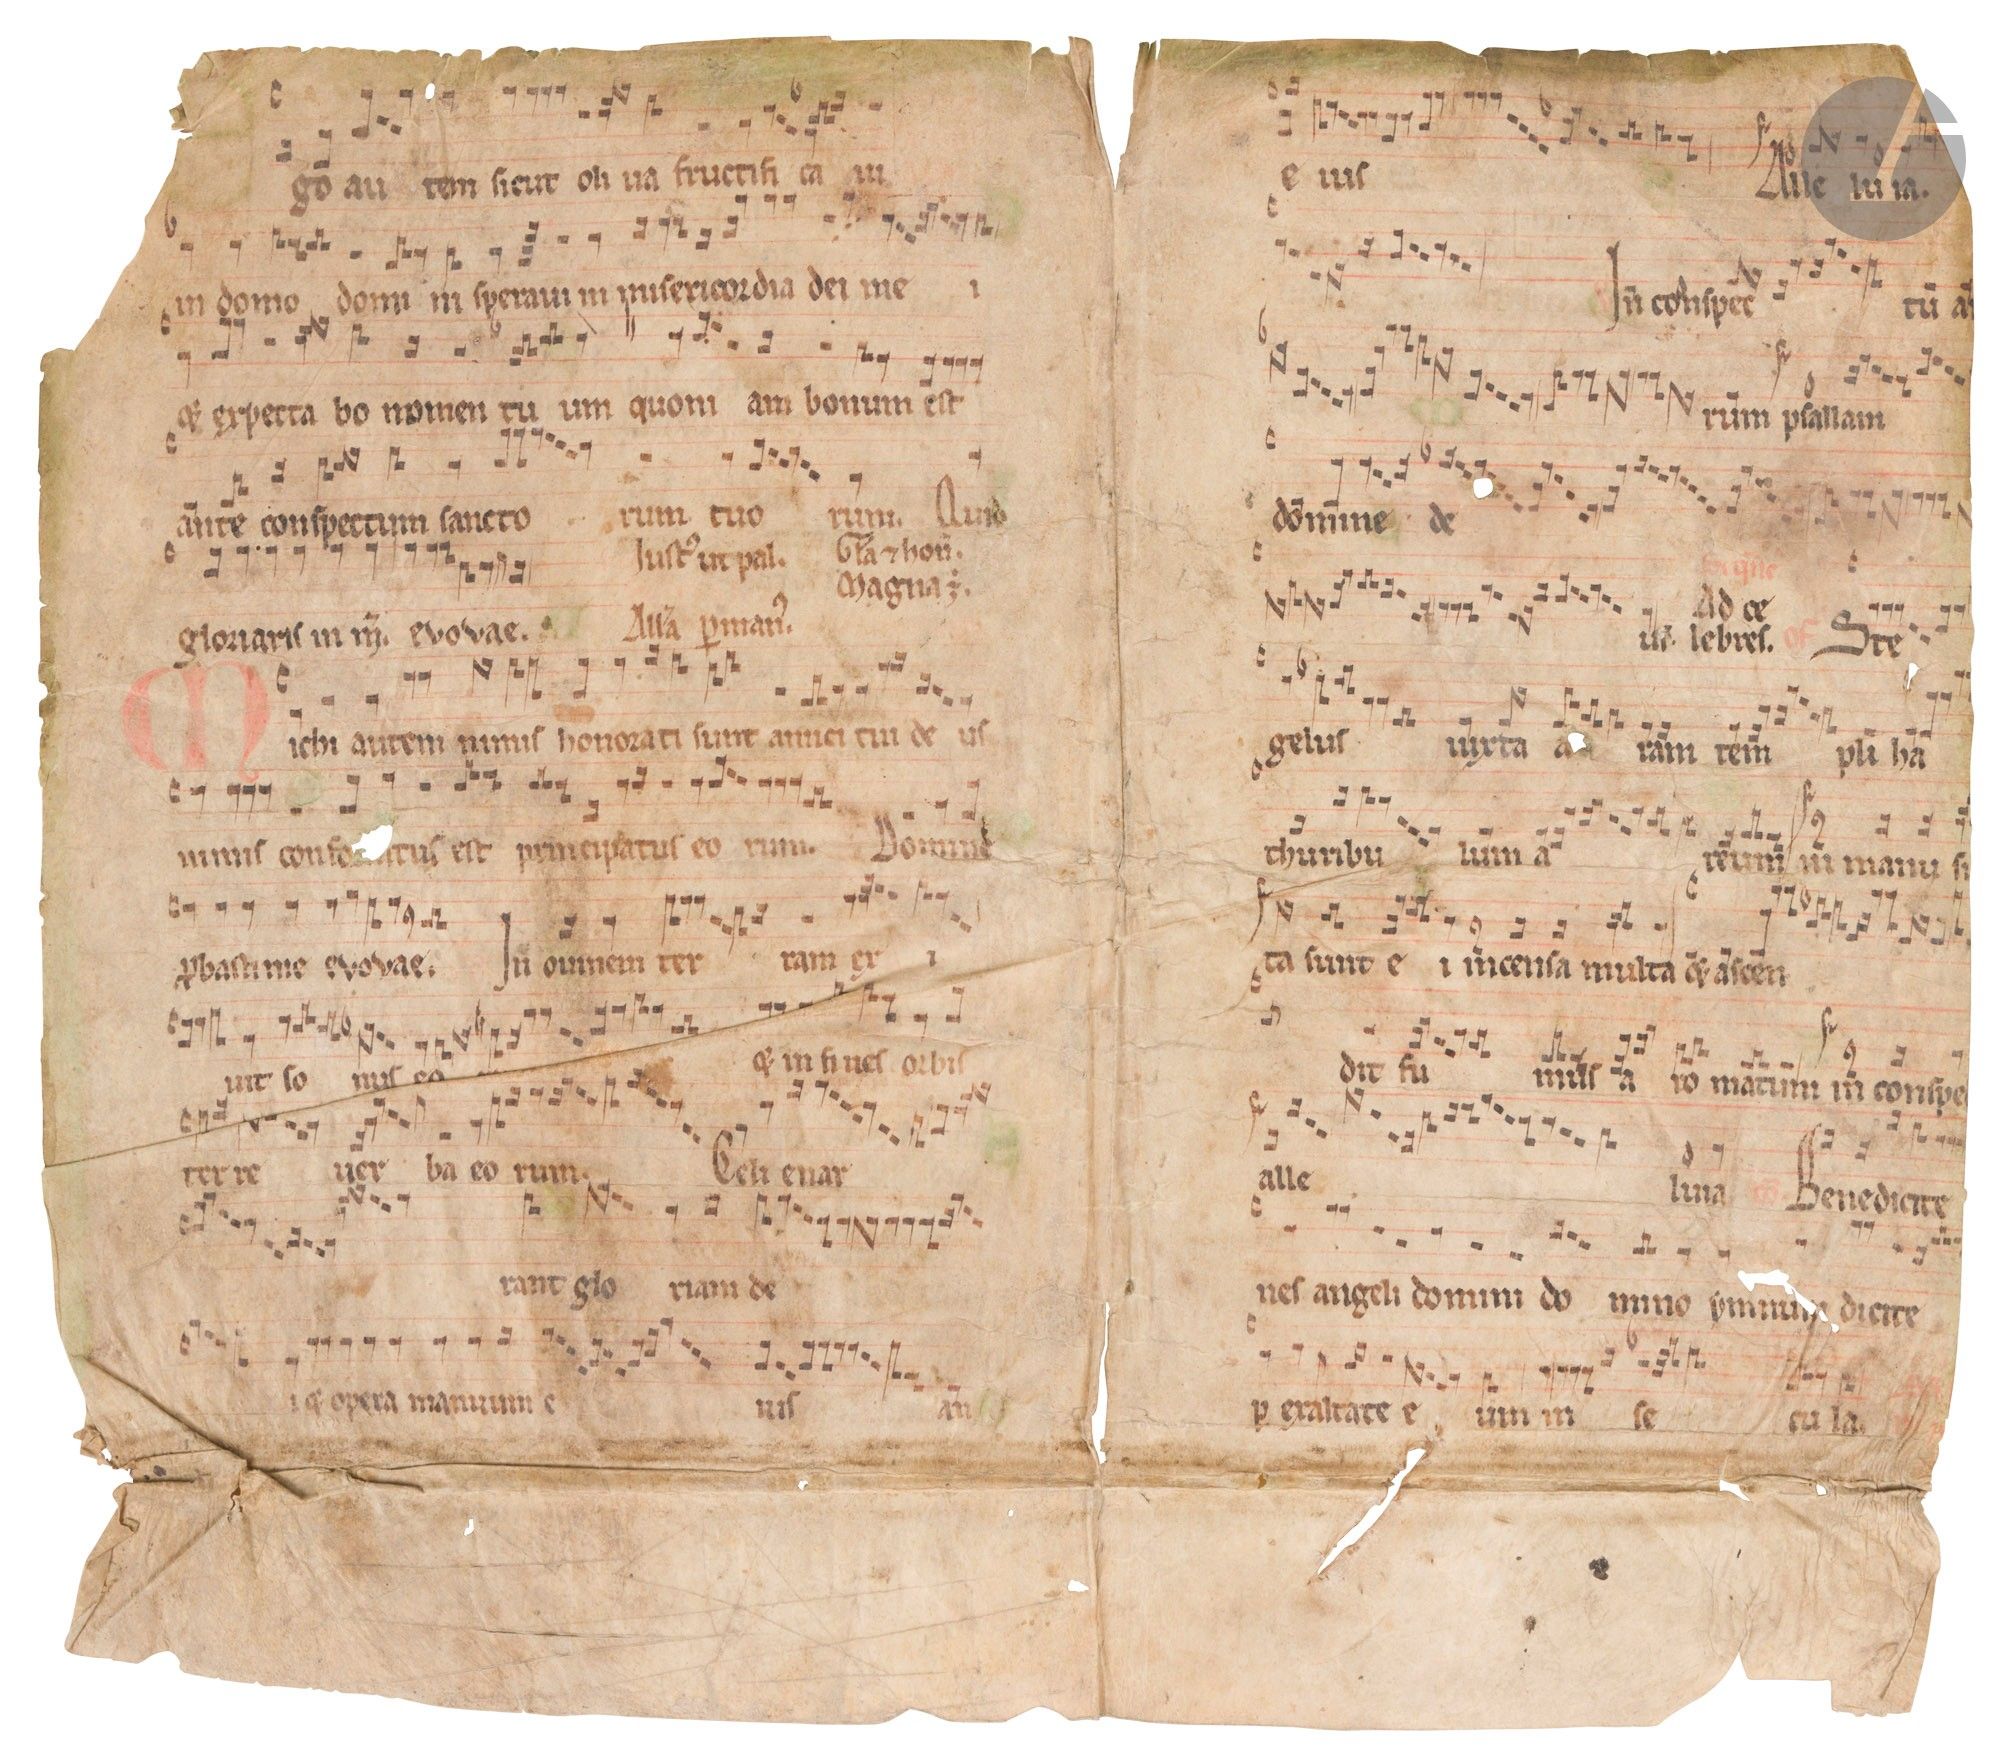 gō au tem sicut oli ua fructifi ca ui
in domo domi ni speraui in misericordia dei me i
⁊ expecta bo nomen tu um quoni am bonum est
ante conspectum sancto rum tuo rum. Quid
Iustꝰ ut pal. Gła ⁊ hoñ.
Magna ẽ.
gloriaris in m̃. evovae. All̃a ꝑman̾.
M ichi autem nimis honorati sunt amici tui de us
nimis confo tatus est principatus eo rum. Domine
ꝓbasti me evovae. In omnem ter ram ex i
uit so nus eo ⁊ in fi nes orbis
ter re uer ba eo rum. Celi enar
rant glo riam de
i ⁊ opera manuum e ius an
e ius Alle lu ia.
In conspec tu an
rum psallam
domine de
Ad ce
us. lebres. Of Ste
gelus iuxta a ram tem pli ha
thuribu lum a reum in manu su
ta sunt e i incensa multa ⁊ ascen
dit fu mus a ro matum in conspe
alle luia cō. Benedicite
nes angeli domini do mino ymnum dicite
ꝑ exaltate e um in se cu la.